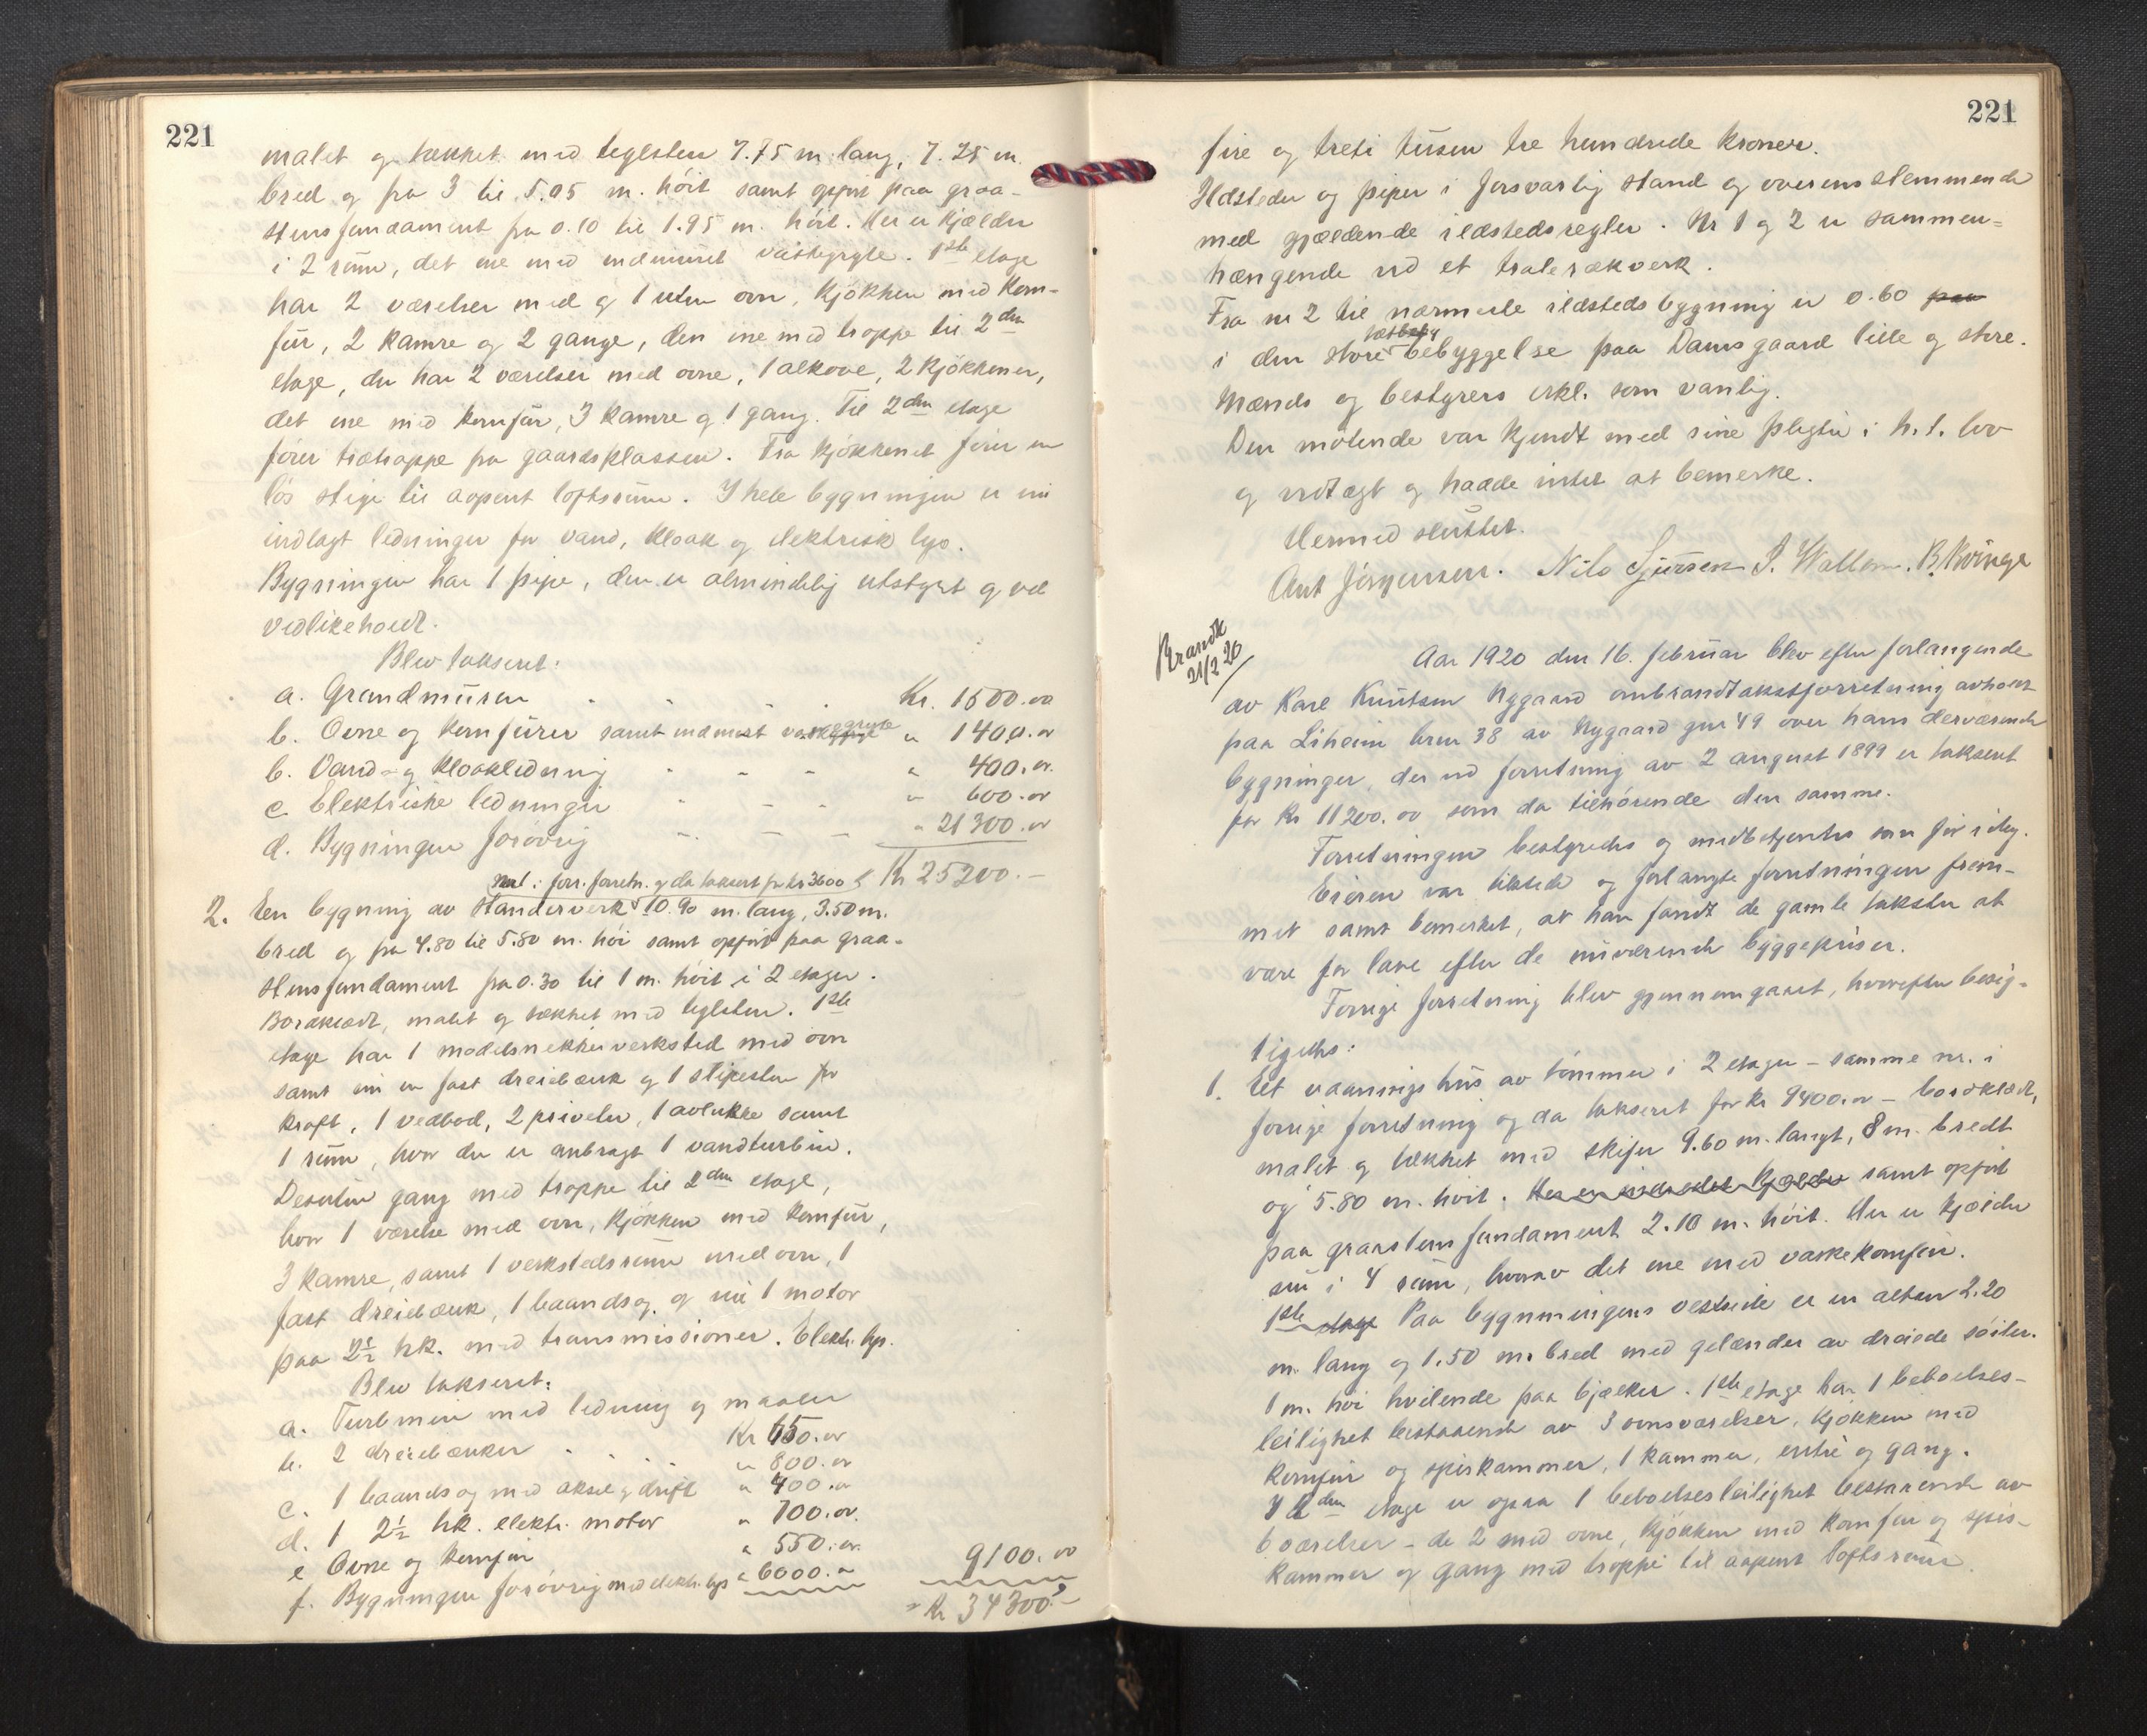 221
malet og tækket med teglsten 7.75 m lang, 7.25 m.
bred og fra 3 til 5.05 m. höit samt opført paa graa-
stensfundament fra 0.10 til 1.95 m. höit. Her er kjælder
i 2 rum, det ene med indmuret vaskegryte. 1ste etage
har 2 værelser med og 1 uten ovn, kjökken med kom-
für, 2 kamre og 2 gange, den ene med trappe til 2den
etage, der har 2 værelser med ovne, 1 alkove, 2 kjökkener,
det ene med komfür, 3 kamre og 1 gang. Til 2den etage
förer trætrappe fra gaardsplassen. Fra kjökkenet förer en
lös stige til aapent loftsrüm. I hele bygningen er nü
indlagt ledninger for vand, kloak og elektrisk lys.
Bygningen har 1 pipe, den er almindelig utstyrt og vel
vedlikeholdt.
Blev takseret:
a. Grundmüren Kr. 1500.00
b. Ovne og komfürer samt indmuret vaskegryte " 1400.00
b. Vand- og kloakledning " 400.00
c. Elektriske ledninger " 600.00
d. Bygningen forövrig " 21300.00
Kr 25200.-
nr 1 i forr. forretn. og da taksert for kr 3600
2. En bygning av standerverk 10.90 m. lang, 3.50 m.
bred og fra 4.80 til 5.80 m. höi samt opført paa graa-
stensfundament fra 0.30 til 1 m. höit i 2 etager.
Bordklædt, malet og tækket med teglsten. 1ste
etage har 1 modelsnekkerverksted med ovn
samt nü en fast dreiebænk og 1 slipesten for
kraft, 1 vedbod, 2 priveter, 1 avlukke samt
1 rüm, hvor der er anbragt 1 vandturbin.
Desuten gang med trappe til 2den etage,
hvor 1 værelse med ovn, kjökken med komfür,
3 kamre, samt 1 verkstedsrüm med ovn, 1
fast dreiebænk, 1 baandsag og nü 1 motor
paa 2½ hk. med transmissioner. Elektr. lys.
Blev takseret:
a. Turbinen med ledning og maaler Kr 650.00
b. 2 dreiebænker " 800.00
c. 1 baandsag med aksel og drift " 400.00
d. 1 2½ hk. elektr. motor " 700.00
e Ovne og komfür " 550.00
f. Bygningen forövrig med elektr. lys " 6000.00 9100.00
Kr 34300.-
221
fire og treti tusen tre hundrede kroner.
Ildsteder og piper i forsvarlig stand og overensstemmende
med gjældende ildstedsregler. Nr 1 og 2 er sammen-
hængende ved et tralerækverk.
Fra nr 2 til nærmeste ildstedsbygning er 0.60 paa
i den store tætbebyggelse paa Damsgaard lille og store.
Mænds og bestyrers erkl. som vanlig.
Den mötende var kjendt med sine pligter i h. t. lov
og vedtægt og hadde intet at bemerke.
Hermed sluttet.
Ant Jörgensen. Nils Sjursen S. Wallem. B. Kvinge
Brandk
21/2 20
Aar 1920 den 16. februar blev efter forlangende
av Kare Knutsen Nygaard ombrandtakstforretning avholdt
paa Liheim brnr 38 av Nygaard gnr 49 over hans derværende
bygninger, der ved forretning av 2 august 1899 er takseret
for kr 11200.00 som da tilhörende den samme.
Forretningen bestyredes og medbetjentes som för idag.
Eieren var tilstede og forlangte forretningen frem-
met samt bemerket, at han fandt de gamle takster at
være for lave efter de nüværende byggepriser.
Forrige forretning blev gjennemgaaet, hvorefter besig-
tigedes:
1. Et vaaningshüs av tömmer i 2 etager - samme nr. i
forrige forretning og da takseret for kr 9400.00 - bordklædt,
malet og tækket med skifer 9.60 m. langt, 8 m. bredt
og 5.80 m. höit. Her er indredet kjælder samt opført
paa graastensfundament 2.10 m. höit. Her er kjælder
nü i 4 rüm, hvorav det ene med vaskekomfür.
1ste etage Paa bygningens vestside er en altan 2.20
m. lang og 1.50 m. bred med gelænder av dreiede söiler.
1 m. höi hvilende paa bjælker. 1ste etage har 1 beboelses-
leilighet bestaaende av 3 ovnsværelser, kjökken med
komfür og spiskammer, 1 kammer, entré og gang.
I 2den etage er ogsaa 1 beboelsesleilighet bestaaende av
6 værelser - de 2 med ovne, kjökken med komfür og spis-
kammer og gang med trappe til aapent loftsrüm.